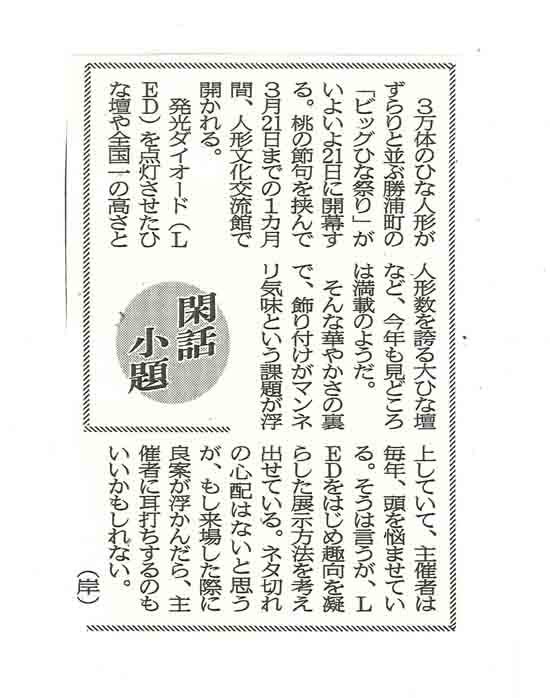 ３万体のひな人形が
ずらりと並ぶ勝浦町の
「ビッグひな祭り」が
いよいよ21日に開幕す
る。桃の節句を挟んで
３月21日までの１カ月
間、人形文化交流館で
開かれる。
発光ダイオード（Ｌ
ＥＤ）を点灯させたひ
な壇や全国一の高さと
人形数を誇る大ひな壇
など、今年も見どころ
は満載のようだ。
そんな華やかさの裏
で、飾り付けがマンネ
リ気味という課題が浮
閑話
小題
上していて、主催者は
毎年、頭を悩ませてい
る。そうは言うが、Ｌ
ＥＤをはじめ趣向を凝
らした展示方法を考え
出せている。ネタ切れ
の心配はないと思う
が、もし来場した際に
良案が浮かんだら、主
催者に耳打ちするのも
いいかもしれない。
（岸）